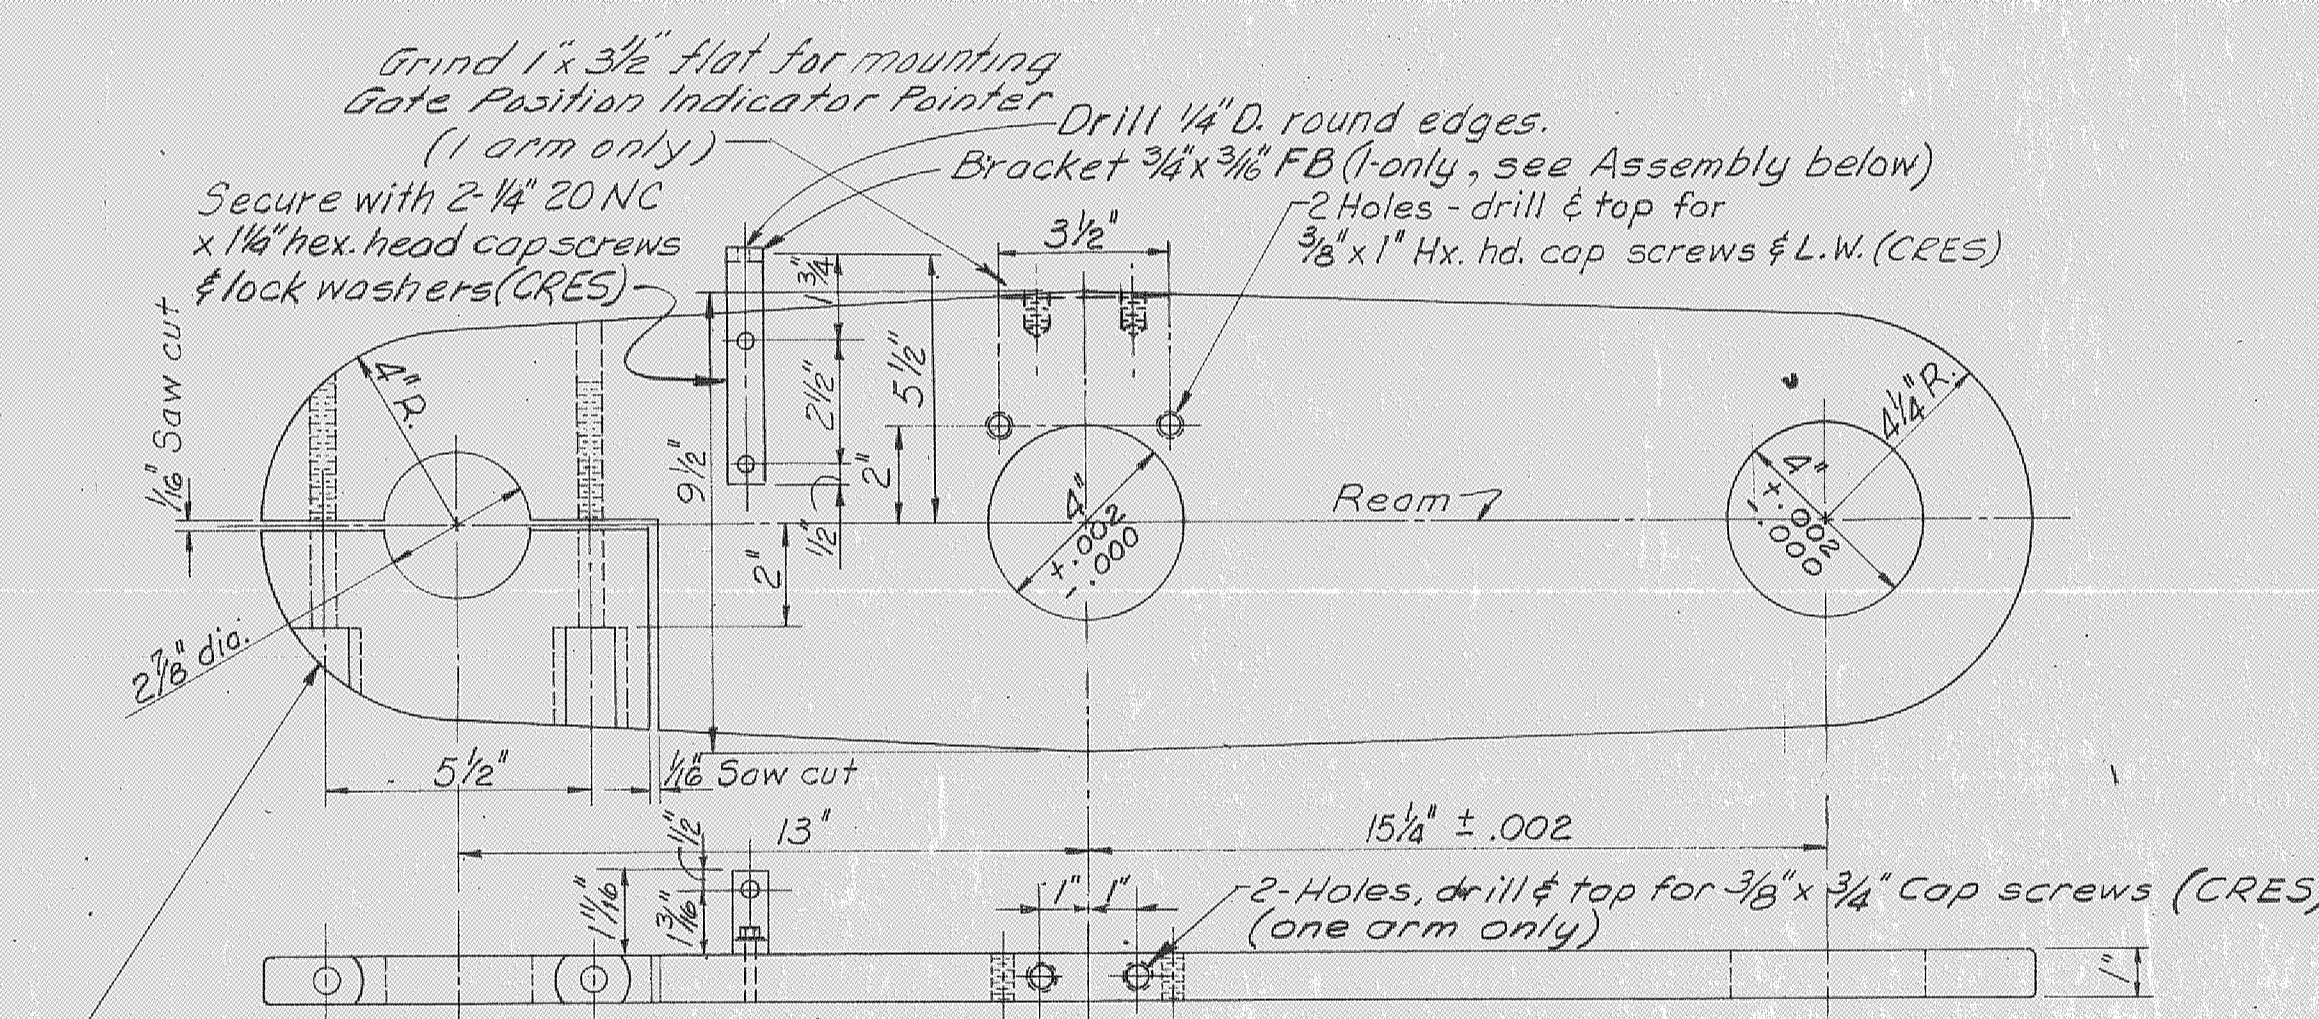 Grind 1" x 3½" flat for mounting
Gate Position Indicator Pointer
(1 arm only)
Drill ¼" D. round edges.
Bracket ¾" x 3/16" FB (1-only, see Assembly below)
Secure with 2-¼" 20 NC
x 1¼" hex. head capscrews
& lock washers (CRES)
2 Holes - drill & tap for
3/8" x 1" Hx. hd. cap screws & L.W. (CRES)
3½"
1¾"
1/16" Saw cut
4" R.
2½"
5½"
4¼" R.
9½"
2"
½"
2"
4"
+.002
-.000
Ream
4"
+.002
-.000
2⅞" dia.
5½"
1/16" Saw cut
13"
15¼" ± .002
½"
1 11/16"
1 3/16"
1"
1"
2-Holes, drill & tap for 3/8" x ¾" Cap screws (CRES)
(one arm only)
1"